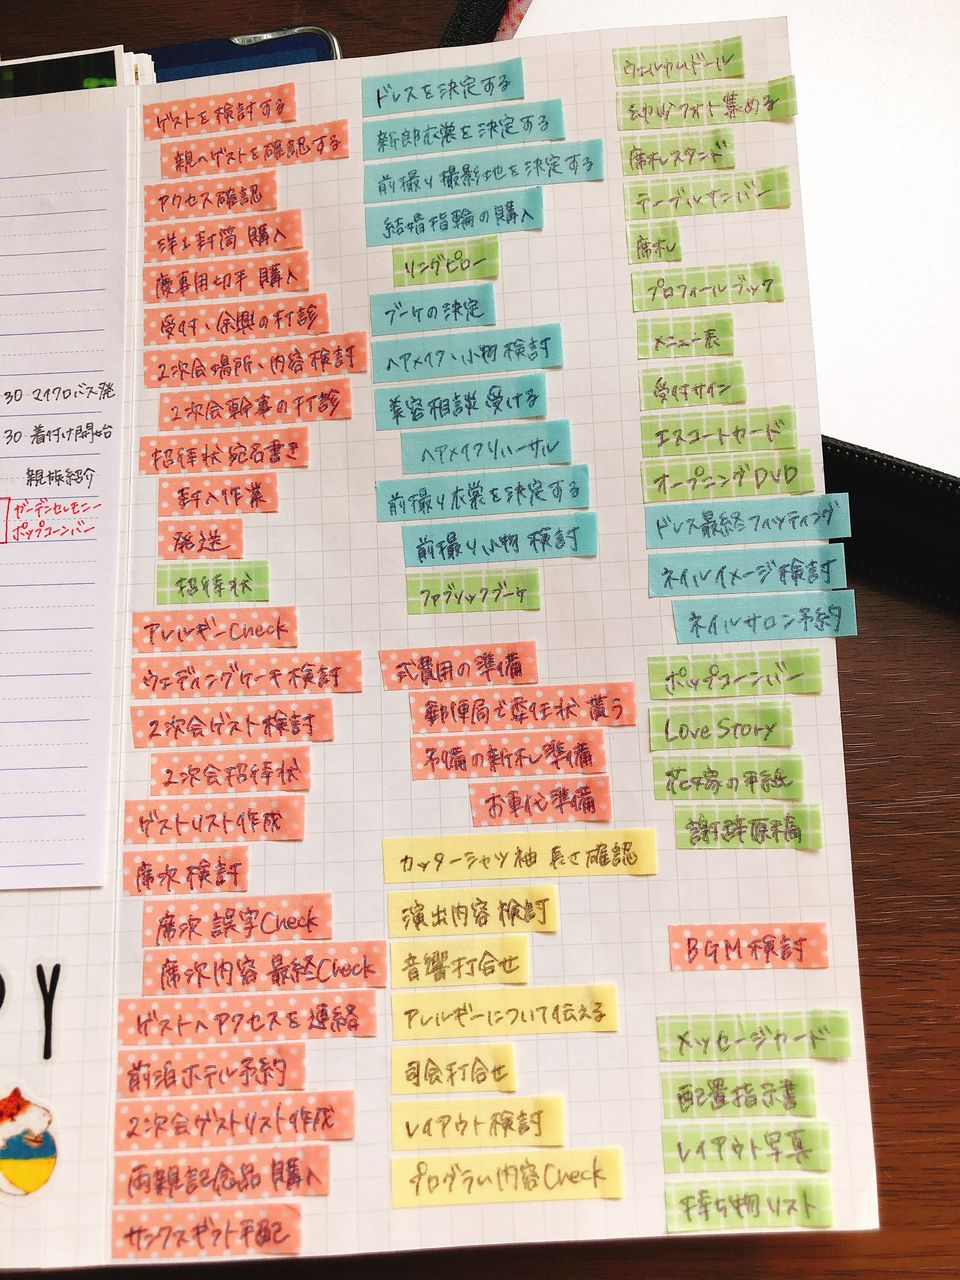 30 マイクロバス発
30 着付け開始
親族紹介
ガーデンセレモニー
ポップコーンバー
PY
ゲストを検討する
親へゲストを確認する
アクセス確認
洋2封筒 購入
慶事用切手 購入
受付、余興の打診
2次会場所、内容検討
2次会幹事の打診
招待状宛名書き
封入作業
発送
招待状
アレルギーCheck
ウェディングケーキ検討
2次会ゲスト検討
2次会招待状
ゲストリスト作成
席次検討
席次 誤字Check
席次内容 最終Check
ゲストへアクセスを連絡
前泊ホテル予約
2次会ゲストリスト作成
両親記念品 購入
サンクスギフト手配
ドレスを決定する
新郎衣裳を決定する
前撮り撮影地を決定する
結婚指輪の購入
リングピロー
ブーケの決定
ヘアメイク、小物検討
美容相談受ける
ヘアメイクリハーサル
前撮り衣裳を決定する
前撮り小物 検討
ファブリックブーケ
式費用の準備
郵便局で委任状 貰う
予備の新札準備
お車代準備
カッターシャツ袖 長さ確認
演出内容検討
音響打合せ
アレルギーについて伝える
司会打合せ
レイアウト検討
プログラム内容Check
ウェルカムドール
フォト集める
席札スタンド
テーブルナンバー
席札
プロフィールブック
メニュー表
受付サイン
エスコートカード
オープニングDVD
ドレス最終フィッティング
ネイルイメージ検討
ネイルサロン予約
ポップコーンバー
Love Story
花嫁の手紙
謝辞原稿
BGM検討
メッセージカード
配置指示書
レイアウト写真
持ち物リスト